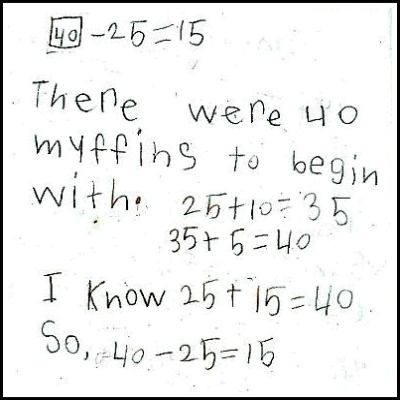 40 -25=15
There were 40
myffins to begin
with. 25+10=35
35+5=40
I Know 25+15=40
So, 40-25=15